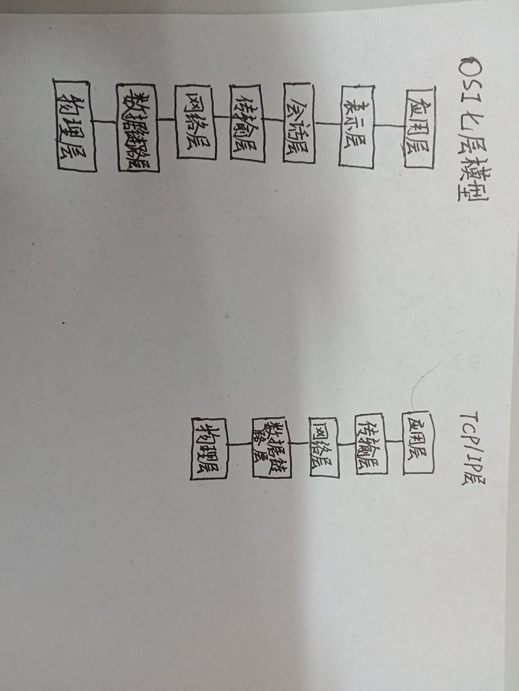 OSI七层模型
应用层
表示层
会话层
传输层
网络层
数据链路层
物理层
TCP/IP层
应用层
传输层
网络层
数据链
路层
物理层